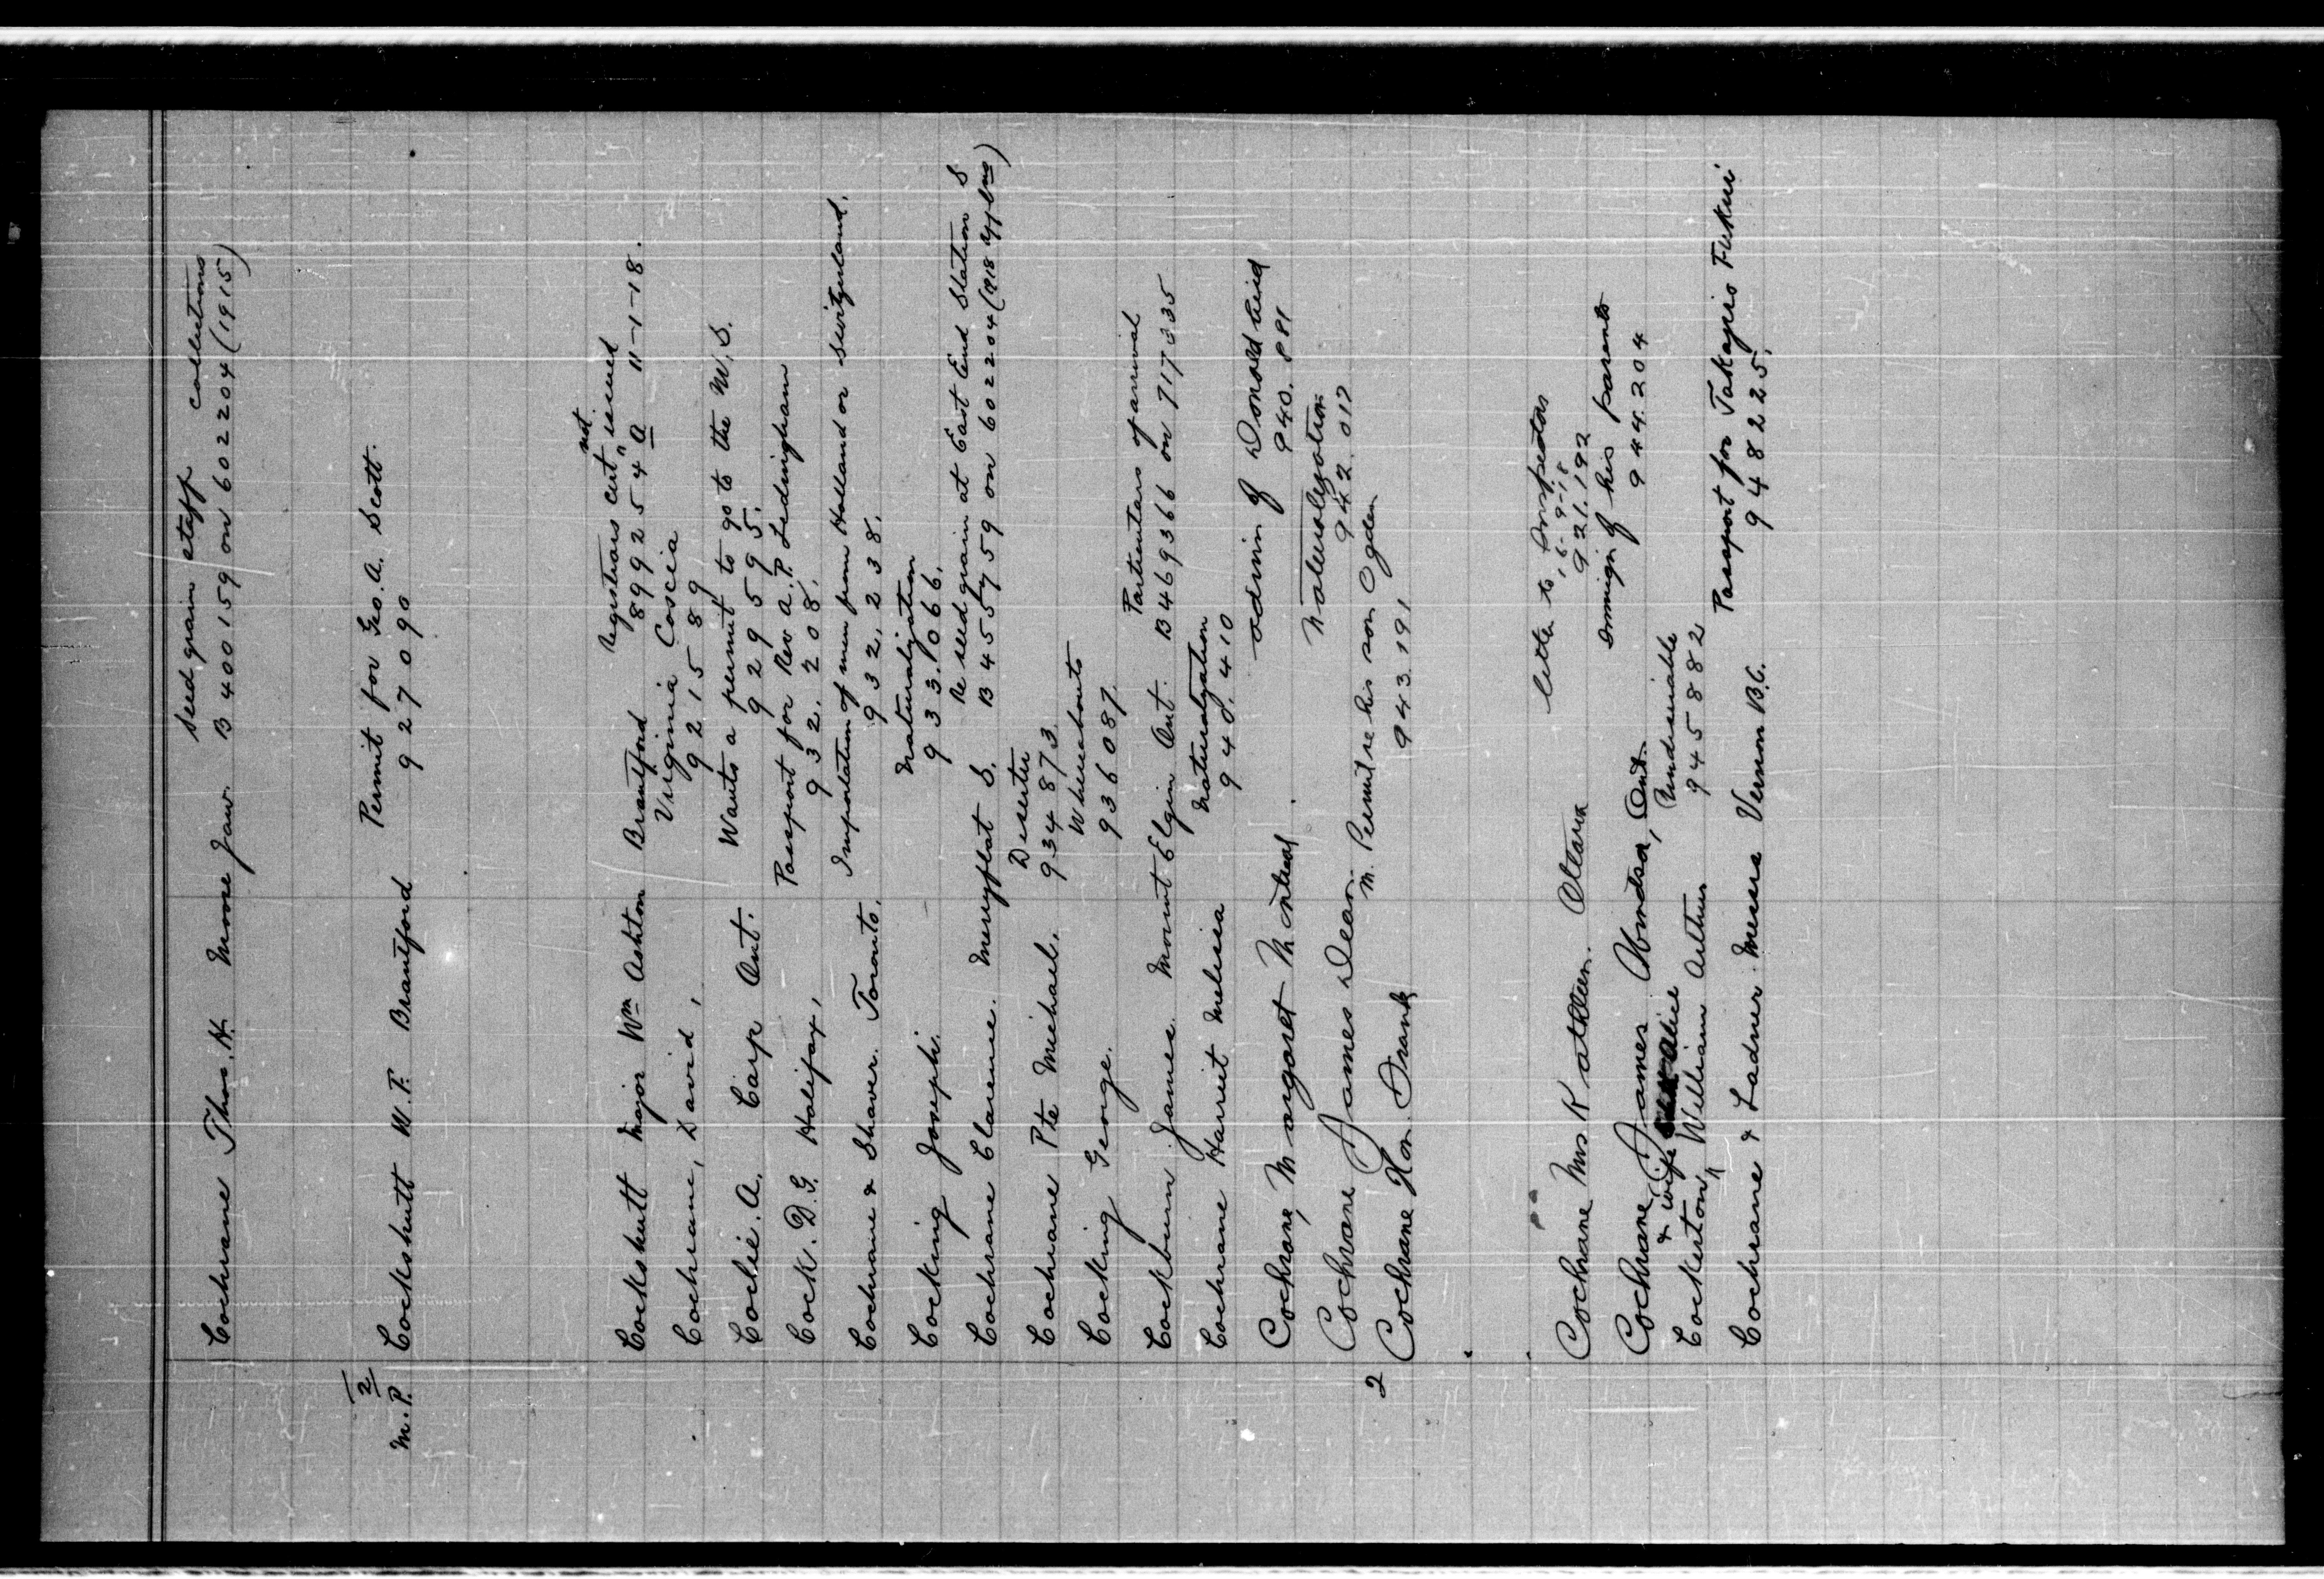 Seed grain staff collections
Cochrane Thos. H. Moose Jaw B 400159 on 602204 (1915)
2
Permit for Geo. A. Scott.
M.P. Cockshutt W. F. Brantford 927090
not
Registrars cert " issued
Cockshutt Major Wm Ashton Brantford 899254 a 11-1-18.
Virginia Coscia
Cochrane, David, 921589
Wants a permit to go to the W, S.
Coclie. A. Carp Ont. 929595.
Passport for Rev A. P. Ledingham
Cock. D. G. Halifax, 932.208.
Importation of men from Holland or Switzerland.
Cochrane & Shaver. Toronto. 932,238.
Naturalization
Cocking Joseph. 933.1066.
Re seed grain at East End Station S
Cochrane Clarence. Merryflat S. B 455759 on 602204 (918
Deserter
Cochrane Pte Michael. 934873
Whereabouts
Cocking George. 936087.
Particulars of arrival
Cockburn James. Mount Elgin Ont. B 469366 on 717335
Naturalization
Cochrane Harriet Melissa 940.410
admin of Donald
Cochrane, Margaret Montreal. 940.881
Naturalization
Cochrane James Dean. 942.012
M. Permit re his son Ogden
2 Cochrane Hon. Frank 943.191
letter to
16-9-18
Cochrane Mrs Kathleen. Ottawa 921.192
of his parents
Cochrane James. Ont. 944.204
& wife Alice Undesirable
Cockerton, William Arthur 945882
Passport for Takagis Fukui
Cochrane & Ladner Messrs Vernon B.C. 948225.